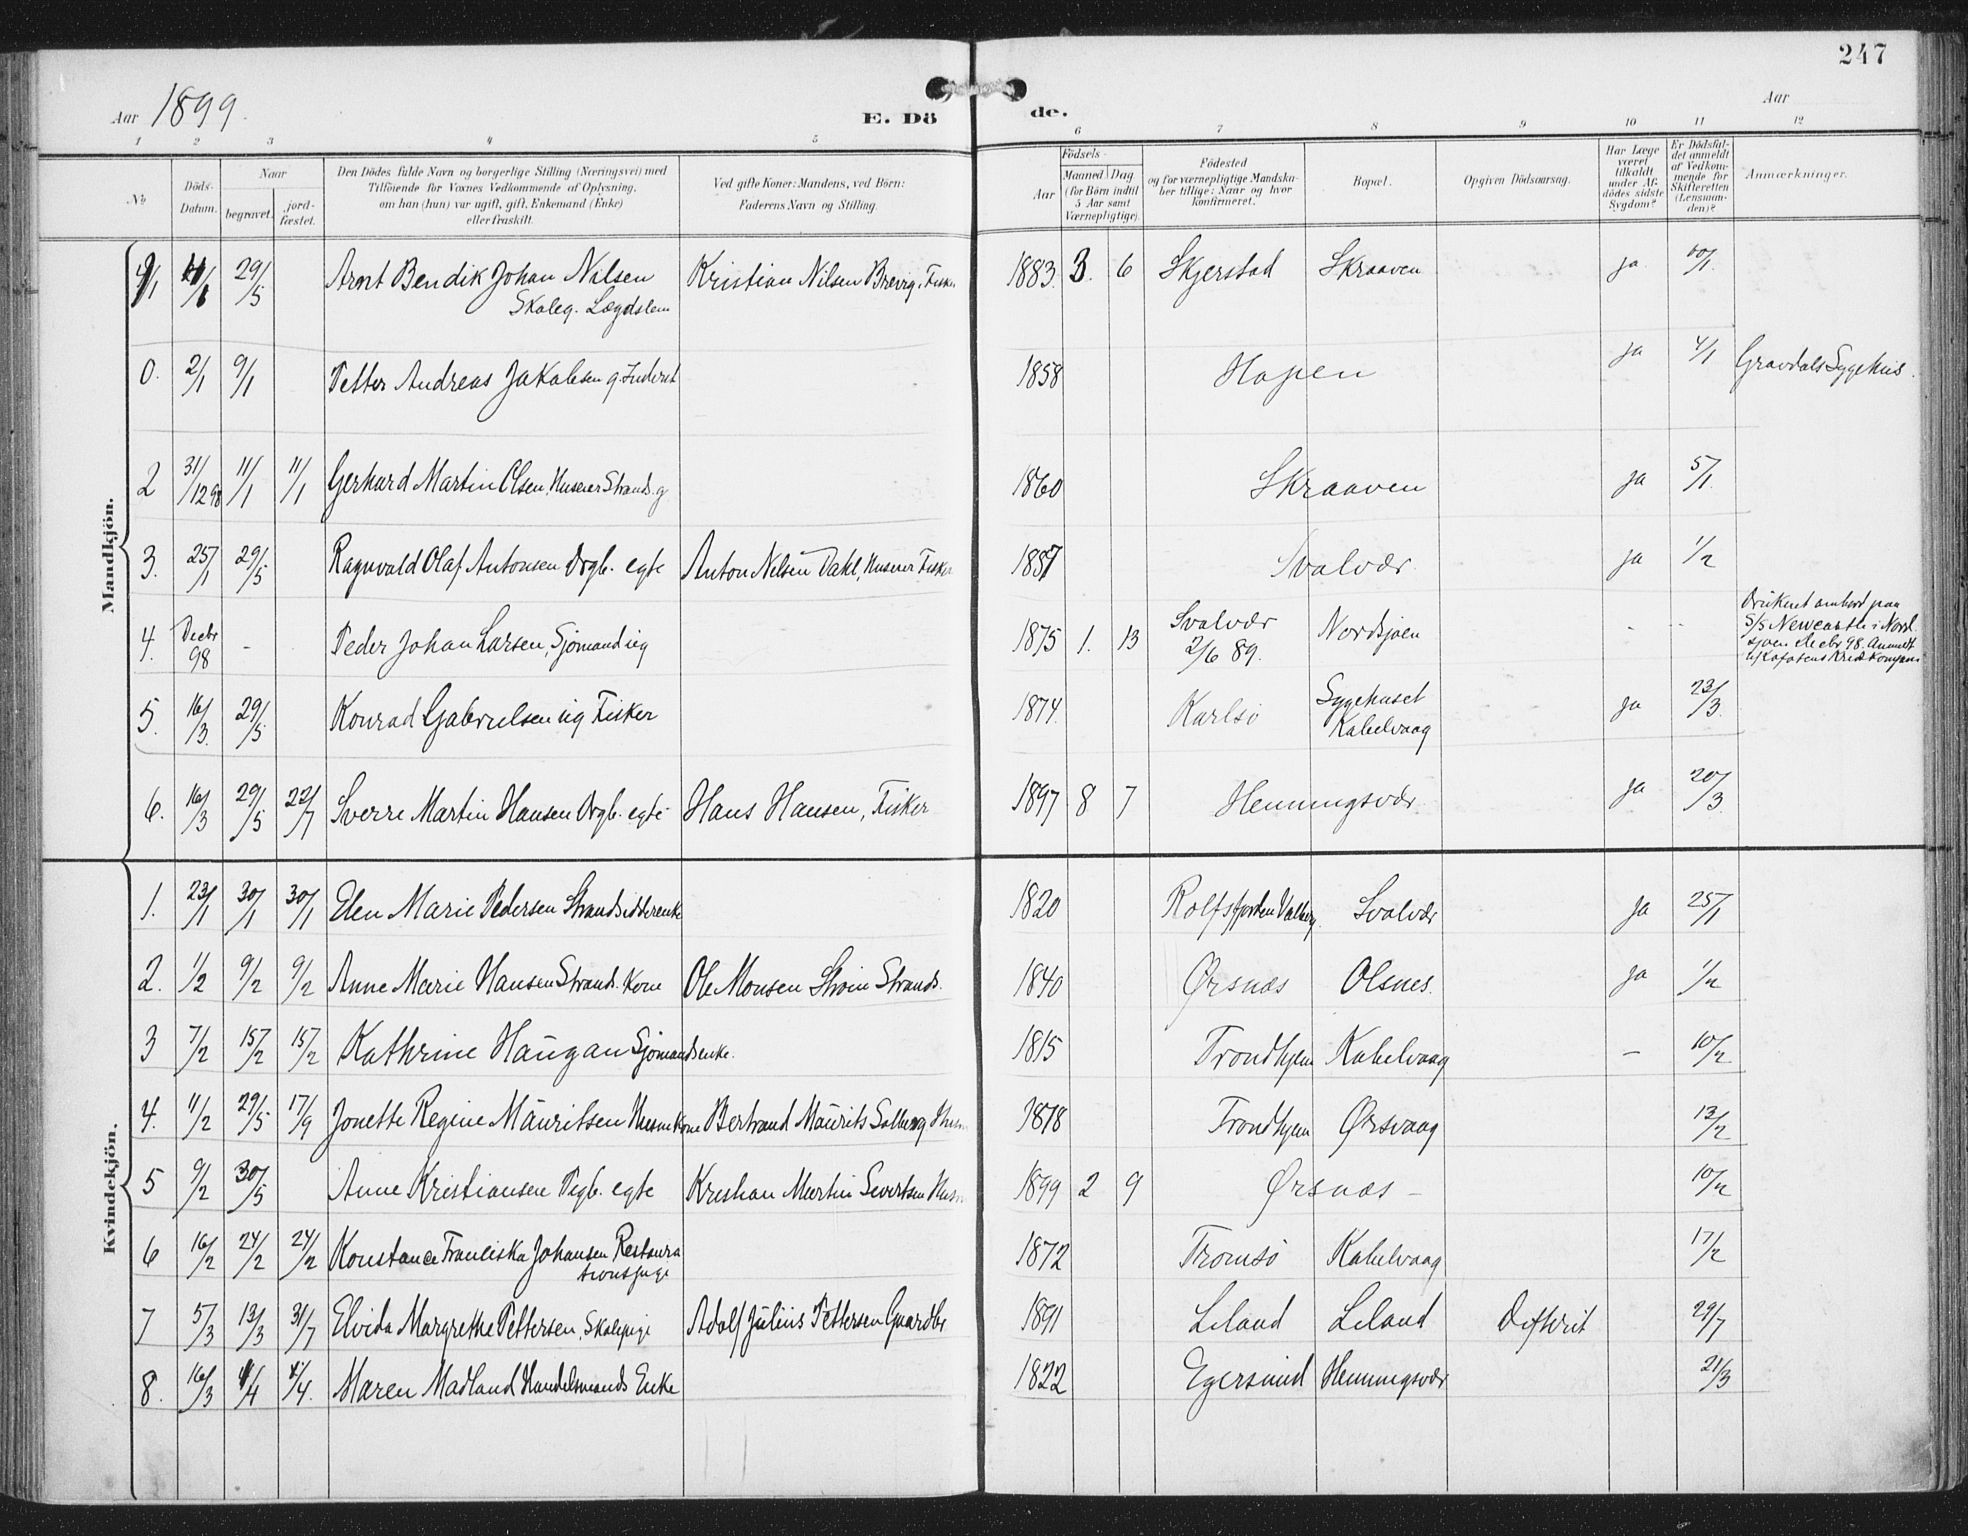 247
Aar 1899.
E. Dö de.
Aar
1 2 3 4 5 6 7 8 9 10 11 12
No
Döds-Datum.
Naar
begravet.
jordfæstet.
Den Dödes fulde Navn og borgerlige Stilling (Næringsvei) med
Tilföiende for Voxnes Vedkommende af Oplysning,
om han (hun) var ugift, gift, Enkemand (Enke)
eller fraskilt.
Ved gifte Koner: Mandens, ved Börn:
Faderens Navn og Stilling.
Födsels-
Aar
Maaned Dag
(for Börn indtil
5 Aar samt
Værnepligtige).
Födested
og for værnepligtige Mandskaber tillige: Naar og hvor
konfirmeret.
Bopæl.
Opgiven Dödsaarsag.
Har Læge
været
tilkaldt
under Afdödes sidste
Sygdom?
Er Dödsfaldet anmeldt
af Vedkommende for
Skifteretten
(Lensmanden)?
Anmærkninger.
Mandkjön.
29/5 Arnt Bendik Johan Nilsen Kristian Nilsen Brevig, 1883 3. 6 Skjerstad Skraaven ja
Skoleg. Lægdslem
0. 2/1 9/1 Petter Andreas Jakobsen g. Inderst 1858 Hopen ja 4/1 Gravdals Sygehus.
2 31/12 98 11/1 11/1 Gerhard Martin Olsen, Strands. g 1860 Skraaven ja 5/1
3. 25/1 29/5 Ragnvald Olaf Antonsen Drgb. egte Anton Nelsen Dahl, Svolvær ja 1/2
4. Decbr 98 - Peder Johan Larsen, Sjömand ug 1875 1. 13 Svolvær 2/6 89. Nordsjøen - - Druknet ombord paa
S/S Newcastle i Nordsjøen Decbr 98. Anmeldt
5. 16/3 29/5 Konrad Gabrielsen ug Fisker 1874 Karlsö Sygehuset Kabelvaag ja 23/3
6. 16/3 29/5 22/7 Sverre Martin Hansen Drgb. egte Hans Hansen, Fisker 1897 8 7 Henningsvær ja 20/3
Kvindekjön.
1. 23/1 30/1 30/1 Elen Marie Pedersen Strandsidderenke 1820 Rolfsfjorden Valberg. Svolvær ja 25/1
2. 1/2 9/2 9/2 Anne Marie Hansen Strands. Kone Ole Monsen Strands. 1840 Ørsnæs Olsnes. ja 1/2
3 7/2 15/2 15/2 Kathrine Haugan Sjömandsenke. 1815 Trondhjem Kabelvaag - 10/2
4. 11/2 29/5 17/9 Jonette Regine Mauritsen Kone Bertrand Maurits Solberg 1878 Trondhjem Ørsvaag 13/2
5 9/2 30/5 Anne Kristiansen Pigb. egte Kristian Martin Sivertsen 1899 2 9 Ørsnæs - 10/2
6 16/2 24/2 24/2 Konstance Franciska Johansen Restaurationspige 1872 Tromsö Kabelvaag 17/2
7 5/3 13/3 31/7 Elvida Margrethe Pettersen, Skolepige Adolf Julius Pettersen Gaardbr 1891 Liland Liland Difterit 29/7
8. 16/3 4/4 4/4. Maren Madland Handelsmands Enke 1822 Egersund Henningsvær 21/3